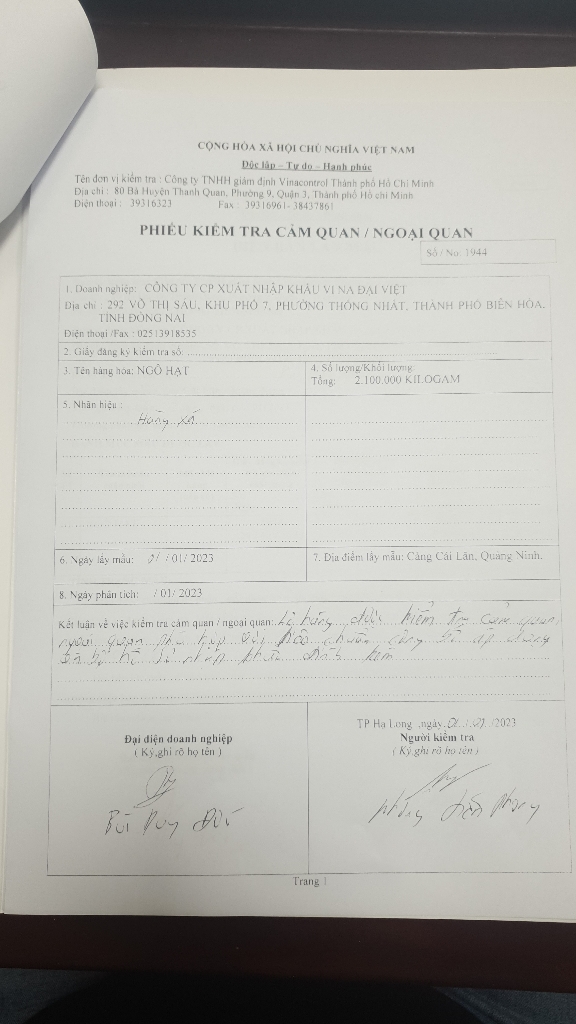 CỘNG HÒA XÃ HỘI CHỦ NGHĨA VIỆT NAM
Độc lập – Tự do – Hạnh phúc
Tên đơn vị kiểm tra : Công ty TNHH giám định Vinacontrol Thành phố Hồ Chí Minh
Địa chỉ : 80 Bà Huyện Thanh Quan, Phường 9, Quận 3, Thành phố Hồ chí Minh
Điện thoại : 39316323 Fax : 39316961- 38437861
PHIẾU KIỂM TRA CẢM QUAN / NGOẠI QUAN
Số / No: 1944
1. Doanh nghiệp: CÔNG TY CP XUẤT NHẬP KHẨU VI NA ĐẠI VIỆT
Địa chỉ : 292 VÕ THỊ SÁU, KHU PHỐ 7, PHƯỜNG THỐNG NHẤT, THÀNH PHỐ BIÊN HÒA,
TỈNH ĐỒNG NAI
Điện thoại /Fax : 02513918535
2. Giấy đăng ký kiểm tra số:
3. Tên hàng hóa: NGÔ HẠT
4. Số lượng/Khối lượng:
Tổng: 2.100.000 KILOGAM
5. Nhãn hiệu :
Hàng xá
6. Ngày lấy mẫu: / 01/ 2023
7. Địa điểm lấy mẫu: Cảng Cái Lân, Quảng Ninh.
8. Ngày phân tích: / 01/ 2023
Kết luận về việc kiểm tra cảm quan / ngoại quan: Lô hàng được kiểm tra cảm quan,
ngoại quan phù hợp với tiêu chuẩn công bố áp dụng
hồ sơ nhập khẩu đính kèm
TP Hạ Long ,ngày /2023
Đại diện doanh nghiệp
( Ký,ghi rõ họ tên )
Người kiểm tra
( Ký,ghi rõ họ tên )
Bùi Duy
Phong
Trang 1